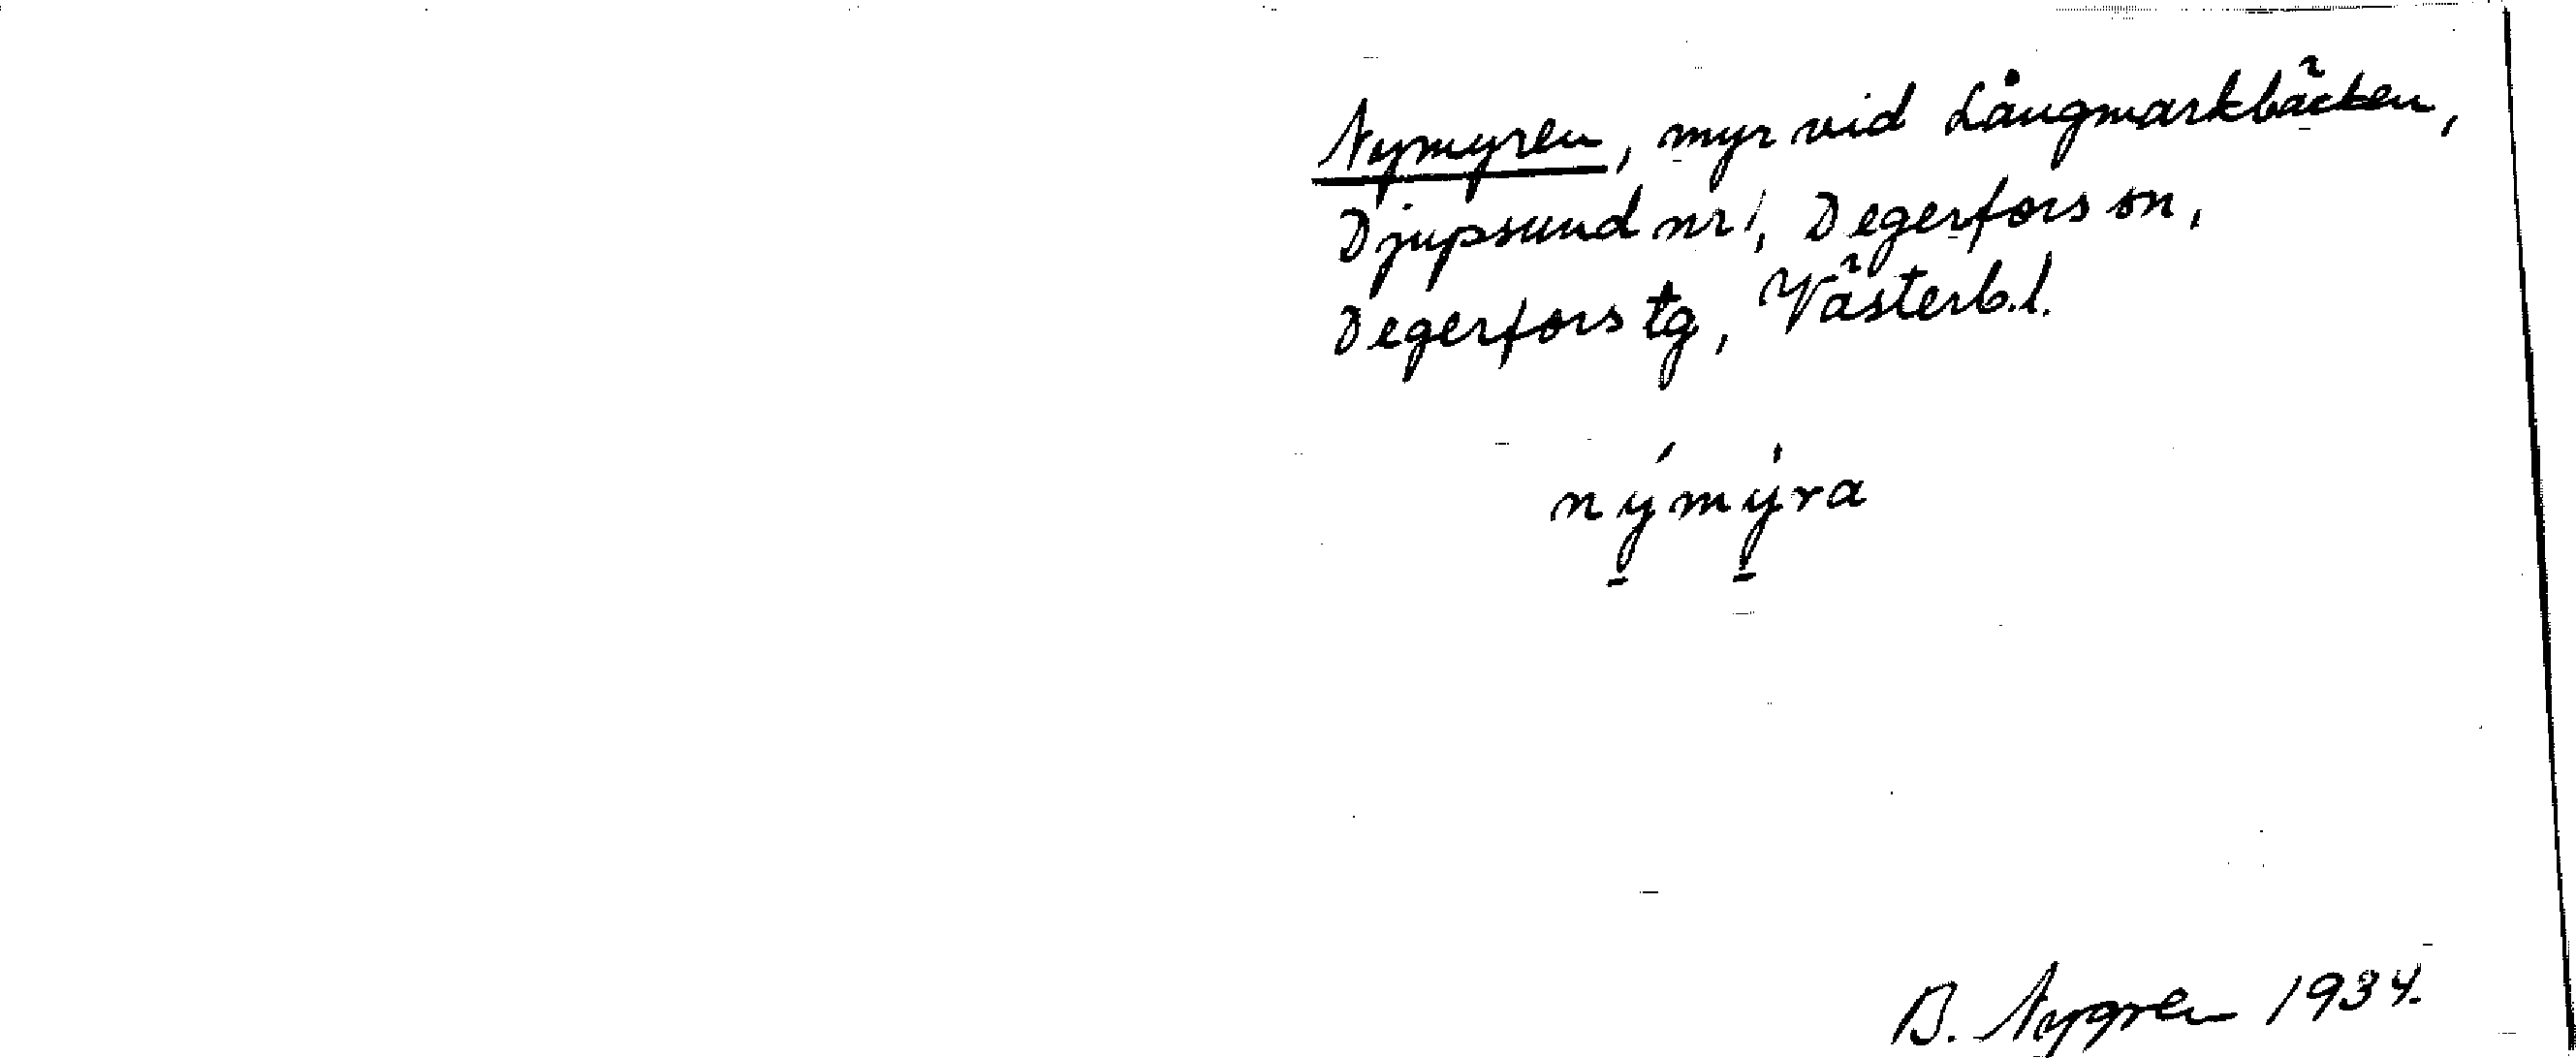 Nymyren, myr vid Långmarkbäcken,
Djupsund nr 1, Degerfors sn,
Degerfors tg, Västerb. l.
ný̱mý̱ra
B. Nygren 1934.